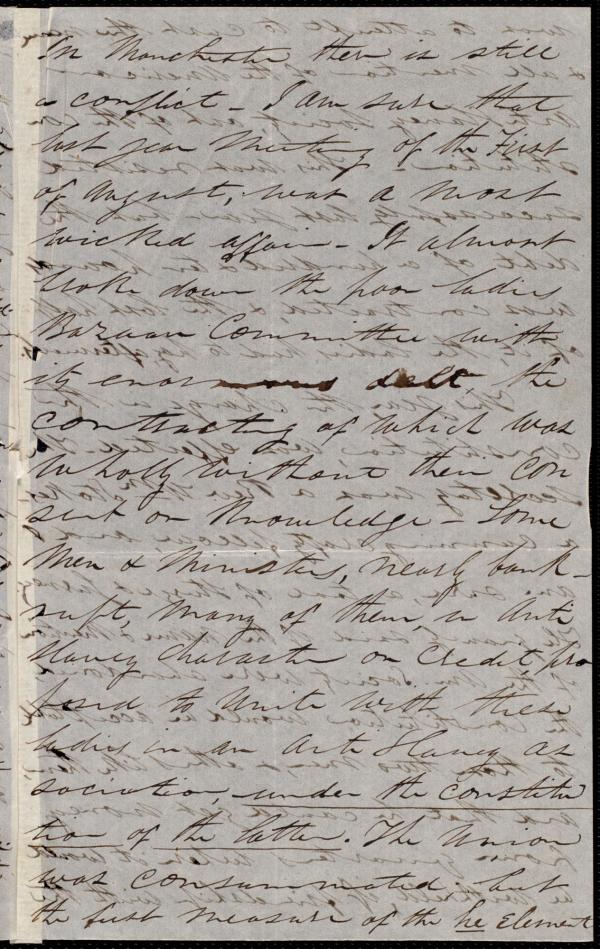 In Manchester there is still
a conflict - I am sure that
last year Meeting of the First
of August, was a most
wicked affair - It almost
broke down the poor ladies
Bazaar Committee with
its enormous debt, the
contracting of which was
wholly without their con
sent or knowledge - Some
Men & Ministers, nearly bank-
rupt, many of them, in Anti
Slavery character or credit, pro
posed to unite with these
ladies in an Anti Slavery as
sociation, under the constitu
tion of the latter. The Union
was consummated, but
the first measure of the he element